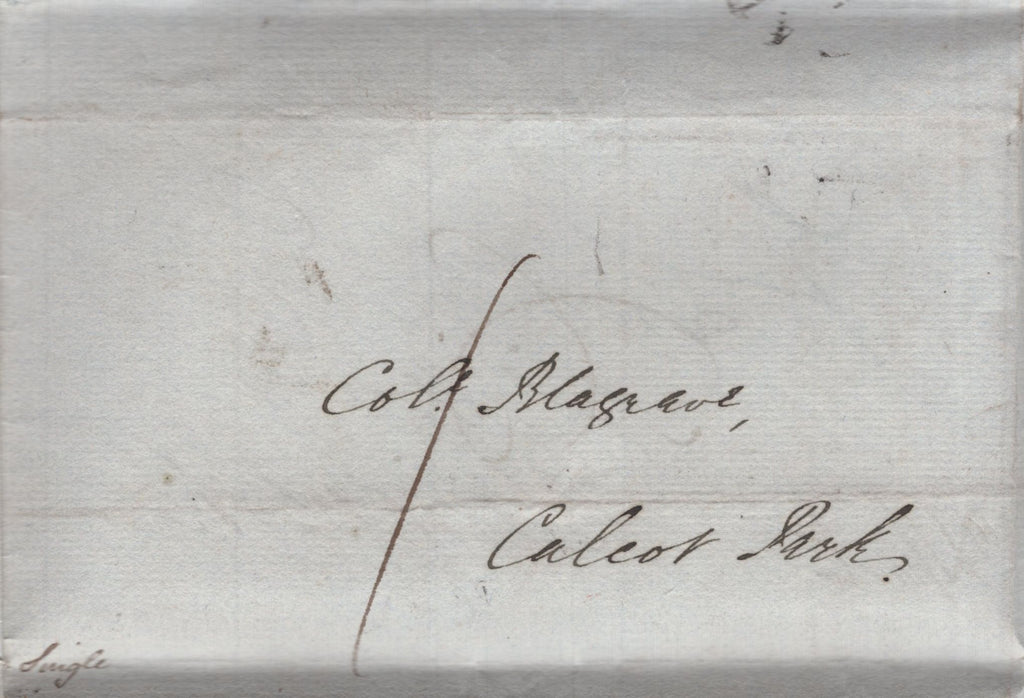 Col. Blagrave,
Calcot Park.
Single